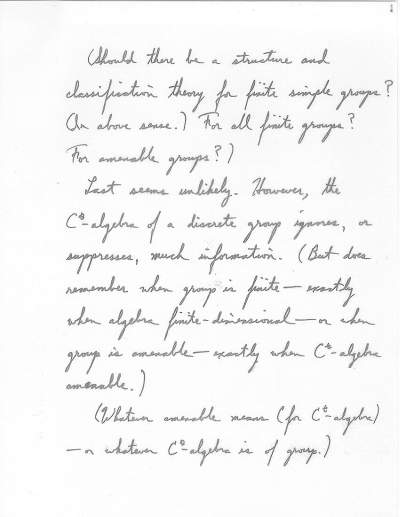 1
(Should there be a structure and
classification theory for finite simple groups?
(In above sense.) For all finite groups?
For amenable groups?)
Last seems unlikely. However, the
C*-algebra of a discrete group ignores, or
suppresses, much information. (But does
remember when group is finite — exactly
when algebra finite-dimensional — or when
group is amenable — exactly when C*-algebra
amenable.)
(Whatever amenable means (for C*-algebra)
— or whatever C*-algebra is of group.)